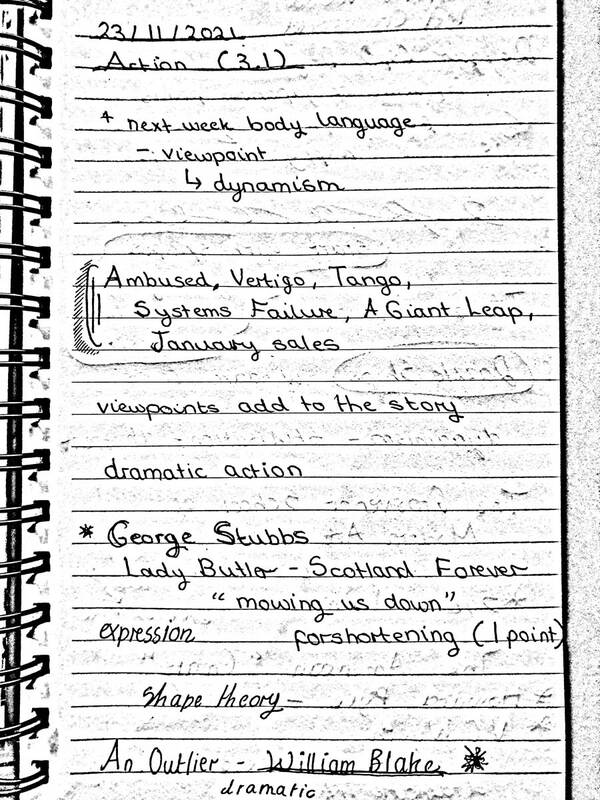 23/11/2021
Action (3.1)
* next week body language
- viewpoint
↳ dynamism
Ambused, Vertigo, Tango,
Systems Failure, A Giant Leap,
January sales
viewpoints add to the story
dramatic action
* George Stubbs
Lady Butler - Scotland Forever
"mowing us down"
expression forshortening (1 point)
shape theory -
An Outlier - William Blake *
dramatic